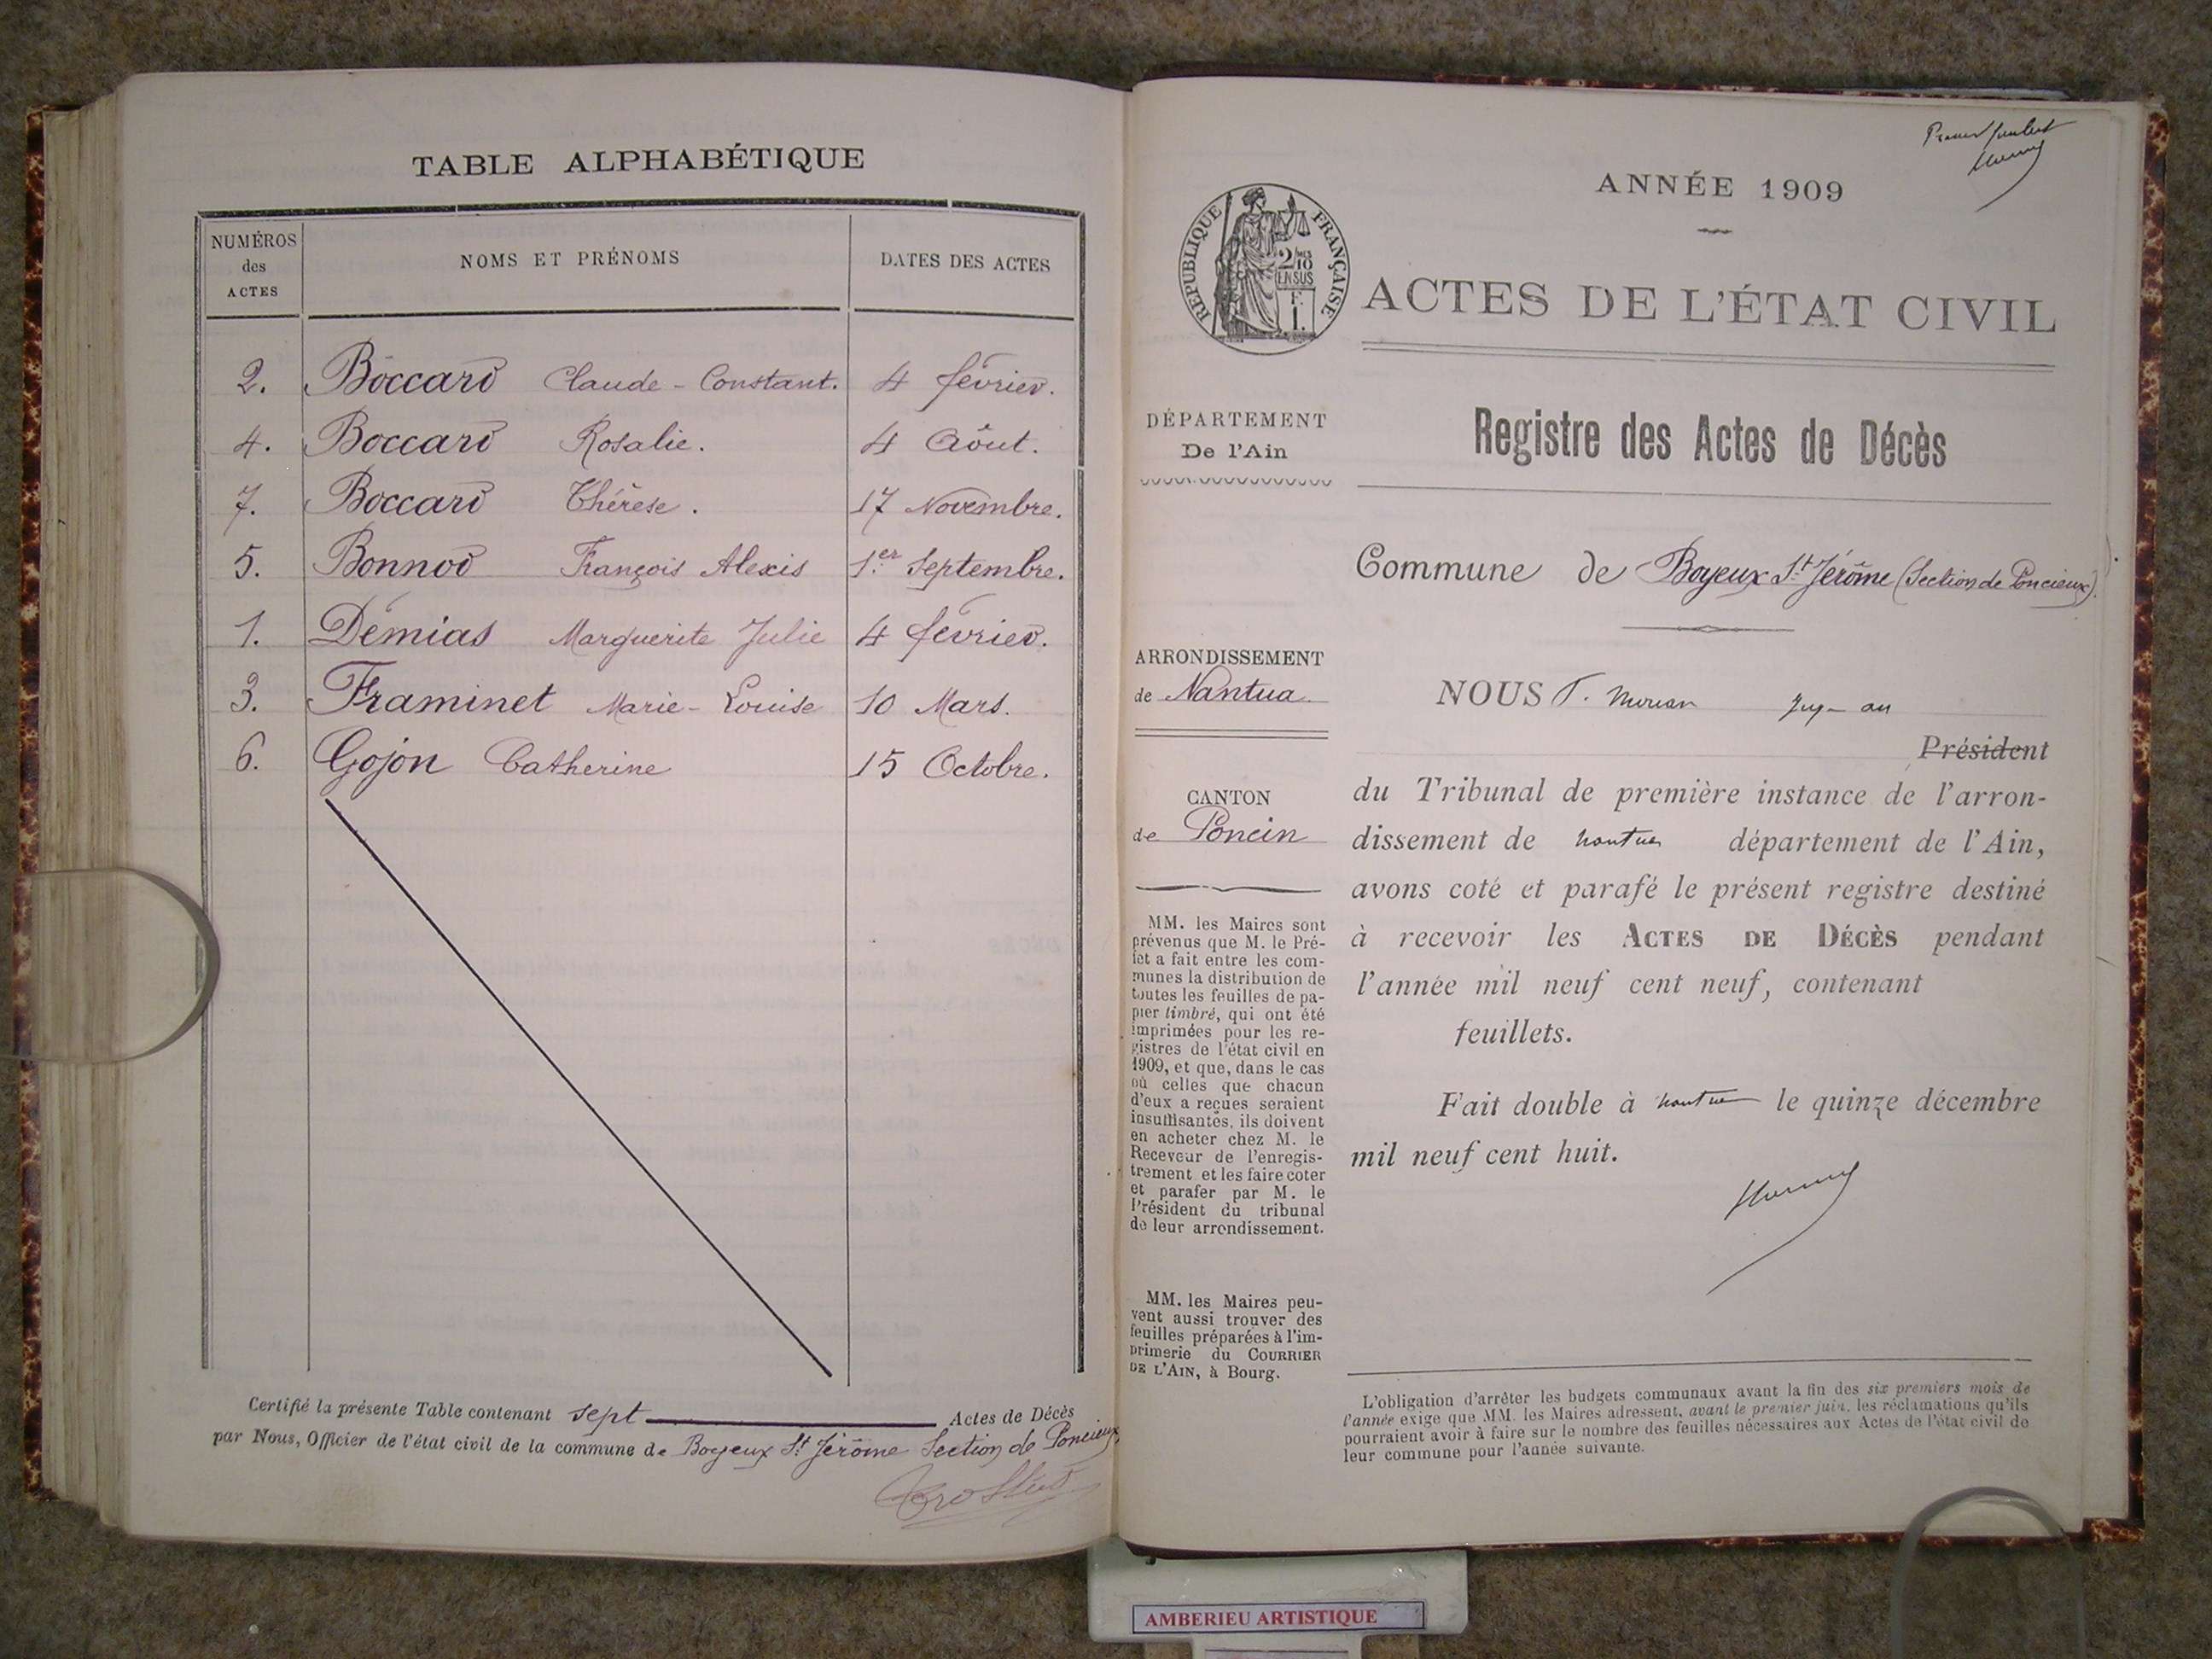 TABLE ALPHABÉTIQUE
NUMÉROS des ACTES
NOMS ET PRÉNOMS
DATES DES ACTES
2. Boccard Claude-Constant. 4 février.
4. Boccard Rosalie. 4 Aôut.
7. Boccard Thérèse. 17 Novembre.
5. Bonnod François Alexis 1er Septembre.
1. Démias Marguerite Julie 4 février.
3. Framinet Marie-Louise 10 Mars.
6. Gojon Catherine 15 Octobre.
Certifié la présente Table contenant sept Actes de Décès
par Nous, Officier de l'état civil de la commune de Boyeux St Jérôme Section de Poncieux
Premier feuillet
ANNÉE 1909
RÉPUBLIQUE FRANÇAISE
2/10 EN SUS
ACTES DE L'ÉTAT CIVIL
DÉPARTEMENT
De l'Ain
Registre des Actes de Décès
Commune de Boyeux St Jérôme (Section de Poncieux).
ARRONDISSEMENT
de Nantua
CANTON
de Poncin
MM. les Maires sont
prévenus que M. le Pré-
fet a fait entre les com-
munes la distribution de
toutes les feuilles de pa-
pier timbré, qui ont été
imprimées pour les re-
gistres de l'état civil en
1909, et que, dans le cas
où celles que chacun
d'eux a reçues seraient
insuffisantes, ils doivent
en acheter chez M. le
Receveur de l'enregis-
trement et les faire coter
et parafer par M. le
Président du tribunal
de leur arrondissement.
MM. les Maires peu-
vent aussi trouver des
feuilles préparées à l'im-
primerie du COURRIER
DE L'AIN, à Bourg.
NOUS
Président
du Tribunal de première instance de l'arron-
dissement de nantua département de l'Ain,
avons coté et parafé le présent registre destiné
à recevoir les ACTES DE DÉCÈS pendant
l'année mil neuf cent neuf, contenant
feuillets.
Fait double à nantua le quinze décembre
mil neuf cent huit.
L'obligation d'arrêter les budgets communaux avant la fin des six premiers mois de
l'année exige que MM. les Maires adressent, avant le premier juin, les réclamations qu'ils
pourraient avoir à faire sur le nombre des feuilles nécessaires aux Actes de l'état civil de
leur commune pour l'année suivante.
AMBERIEU ARTISTIQUE